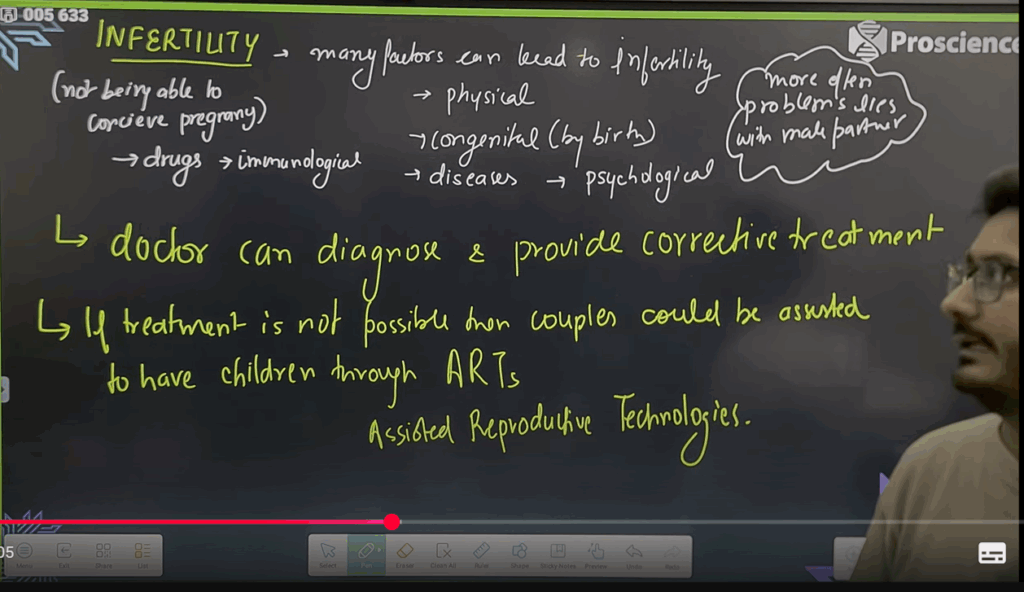 005 633
Proscience
INFERTILITY → many factors can lead to Infertility
(not being able to
concieve pregrany)
→ physical
→ congenital (by birth)
→ drugs → immunological
→ diseases → psychological
more often
problem's lies
with male partner
↳ doctor can diagnose & provide corrective treatment
↳ If treatment is not possible then couples could be assisted
to have children through ARTs
Assisted Reproductive Technologies.
05
Menu Exit Share List
Select Pen Eraser Clear All Ruler Shape Sticky Notes Preview Undo Redo